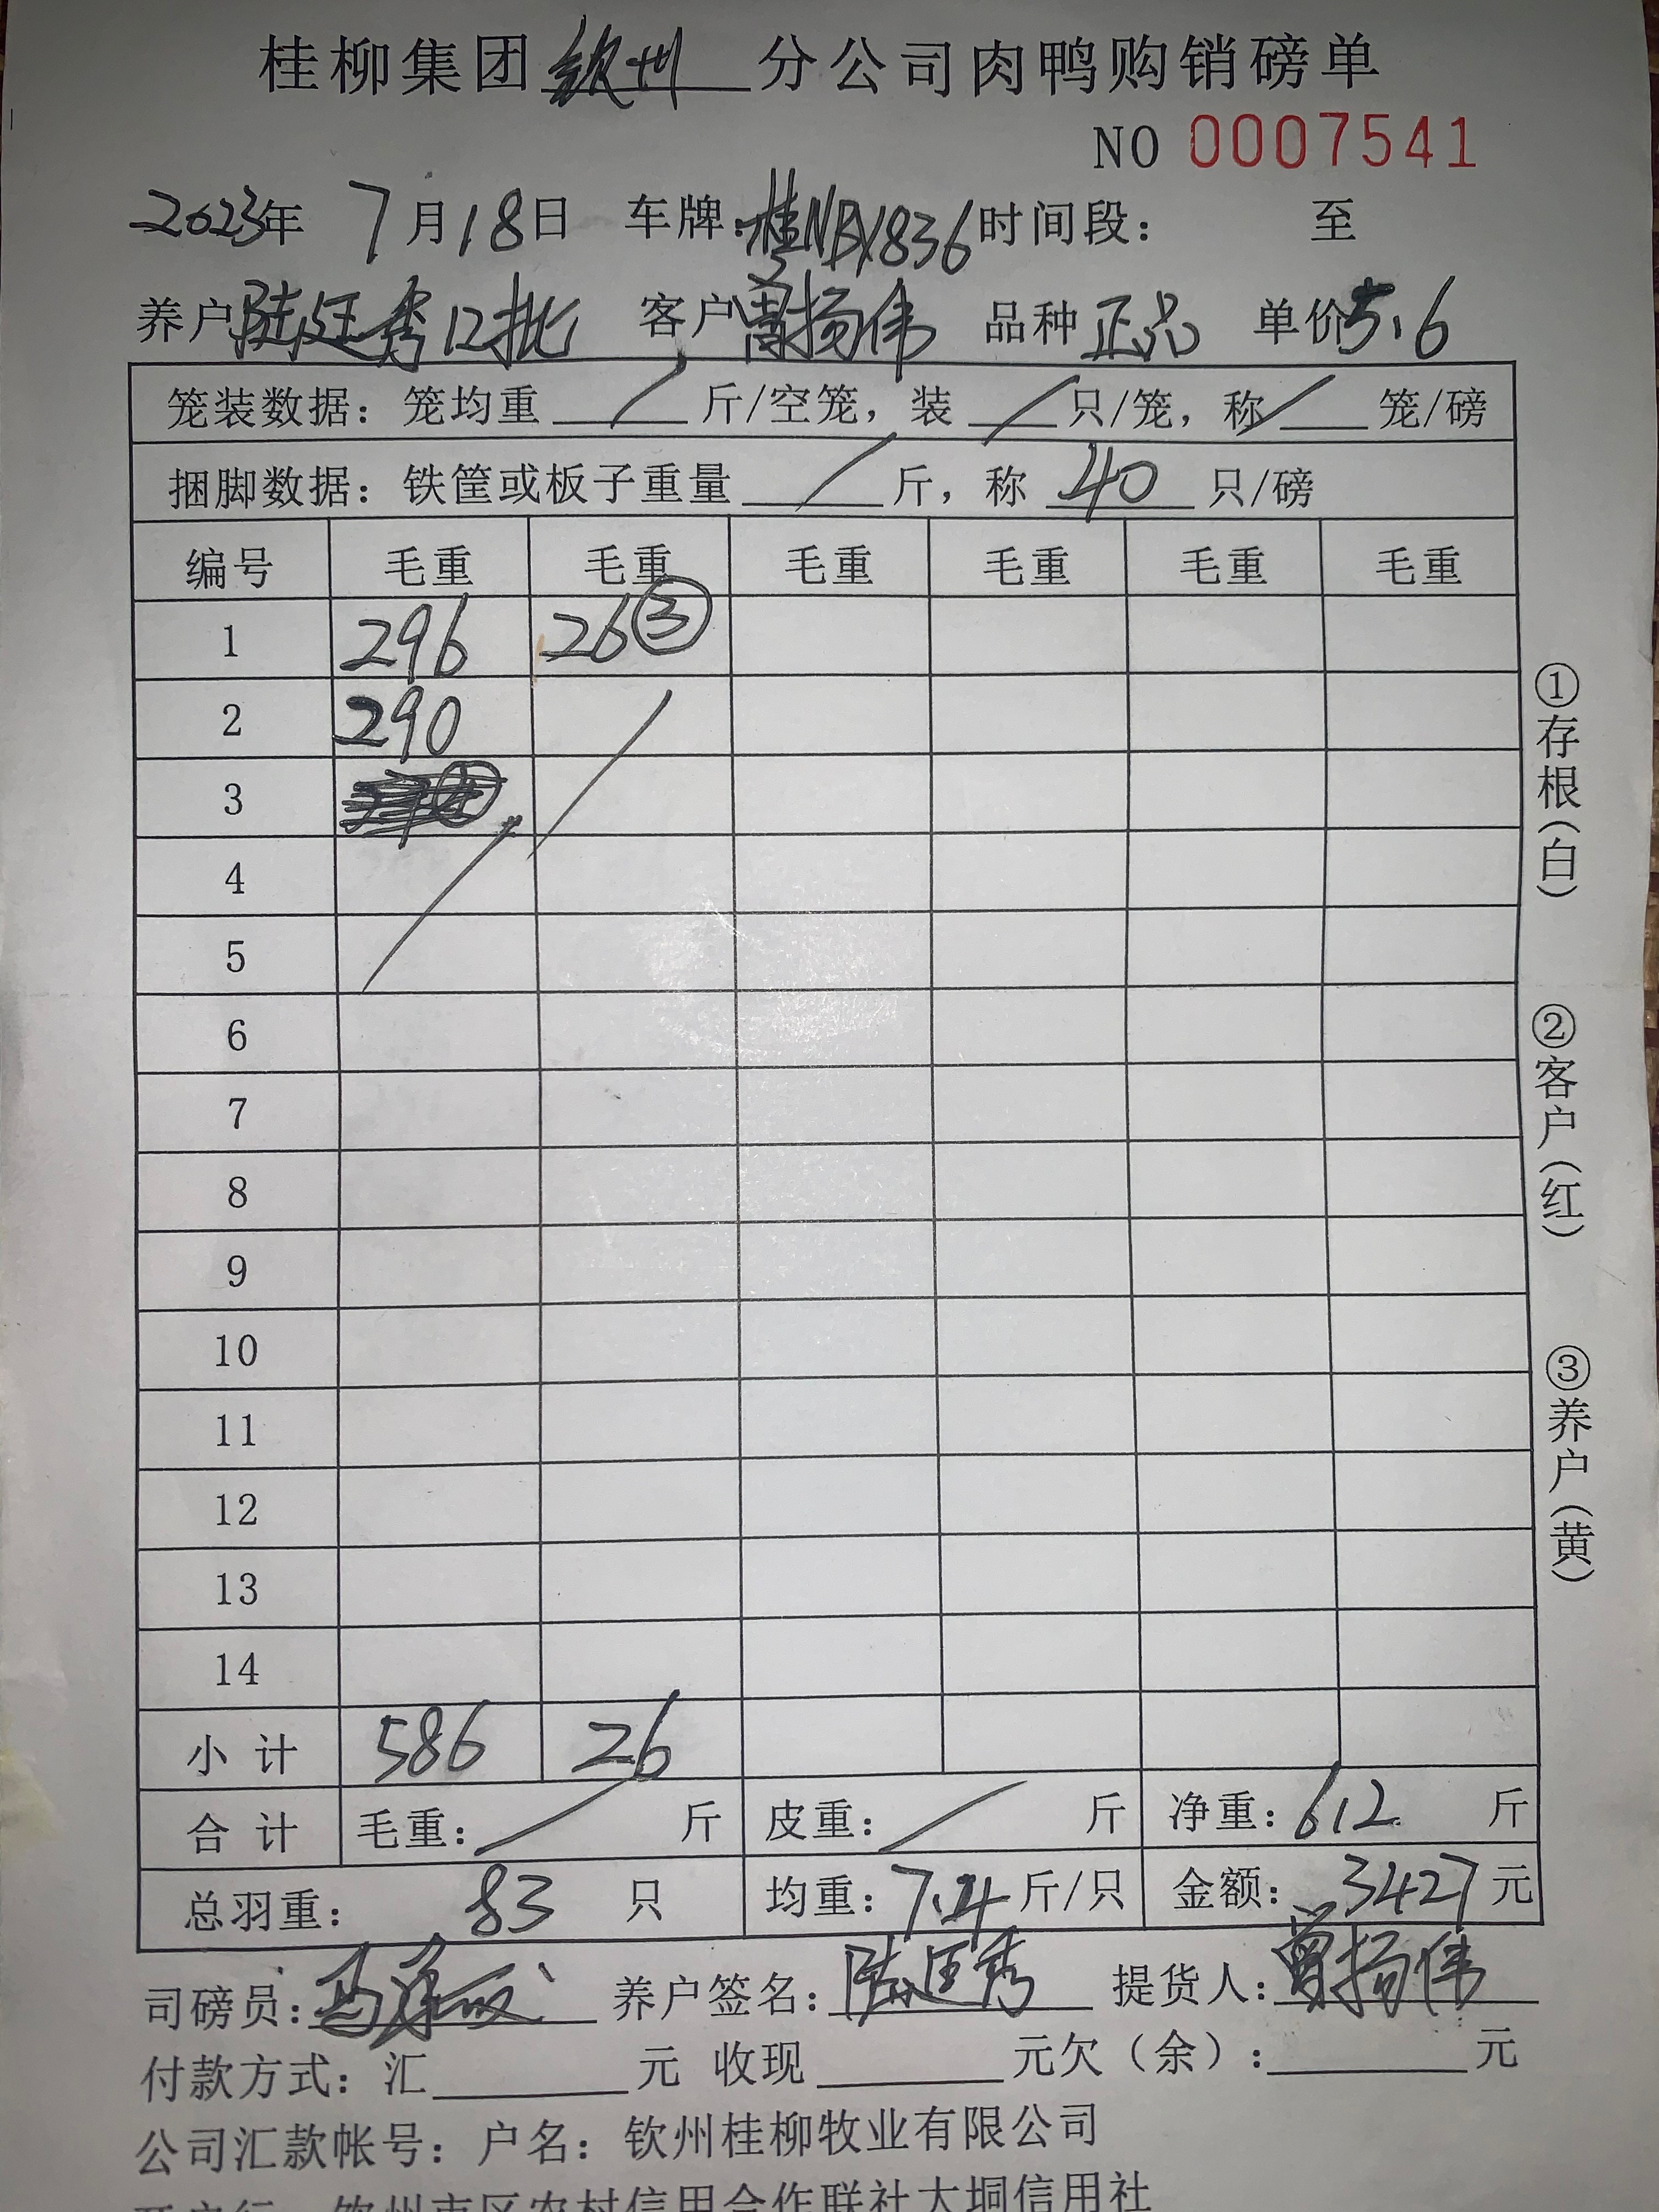 桂柳集团钦州分公司肉鸭购销磅单
NO 0007541
2023年 7月18日 车牌:桂NBX836 时间段: 至
养户陆廷秀12批 客户曾扬伟 品种正品 单价5.6
笼装数据: 笼均重 / 斤/空笼, 装 / 只/笼, 称 / 笼/磅
捆脚数据: 铁筐或板子重量 / 斤, 称 40 只/磅
编号 毛重 毛重 毛重 毛重 毛重 毛重
1 296 26③
2 290
3
4
5
6
7
8
9
10
11
12
13
14
小计 586 26
合计 毛重: / 斤 皮重: / 斤 净重: 612 斤
总羽重: 83 只 均重: 7.4 斤/只 金额: 3427元
司磅员: 养户签名: 陆廷秀 提货人: 曾扬伟
付款方式: 汇 元 收现 元欠(余): 元
公司汇款帐号: 户名: 钦州桂柳牧业有限公司
钦州市区农村信用合作联社大垌信用社
①存根(白)
②客户(红)
③养户(黄)